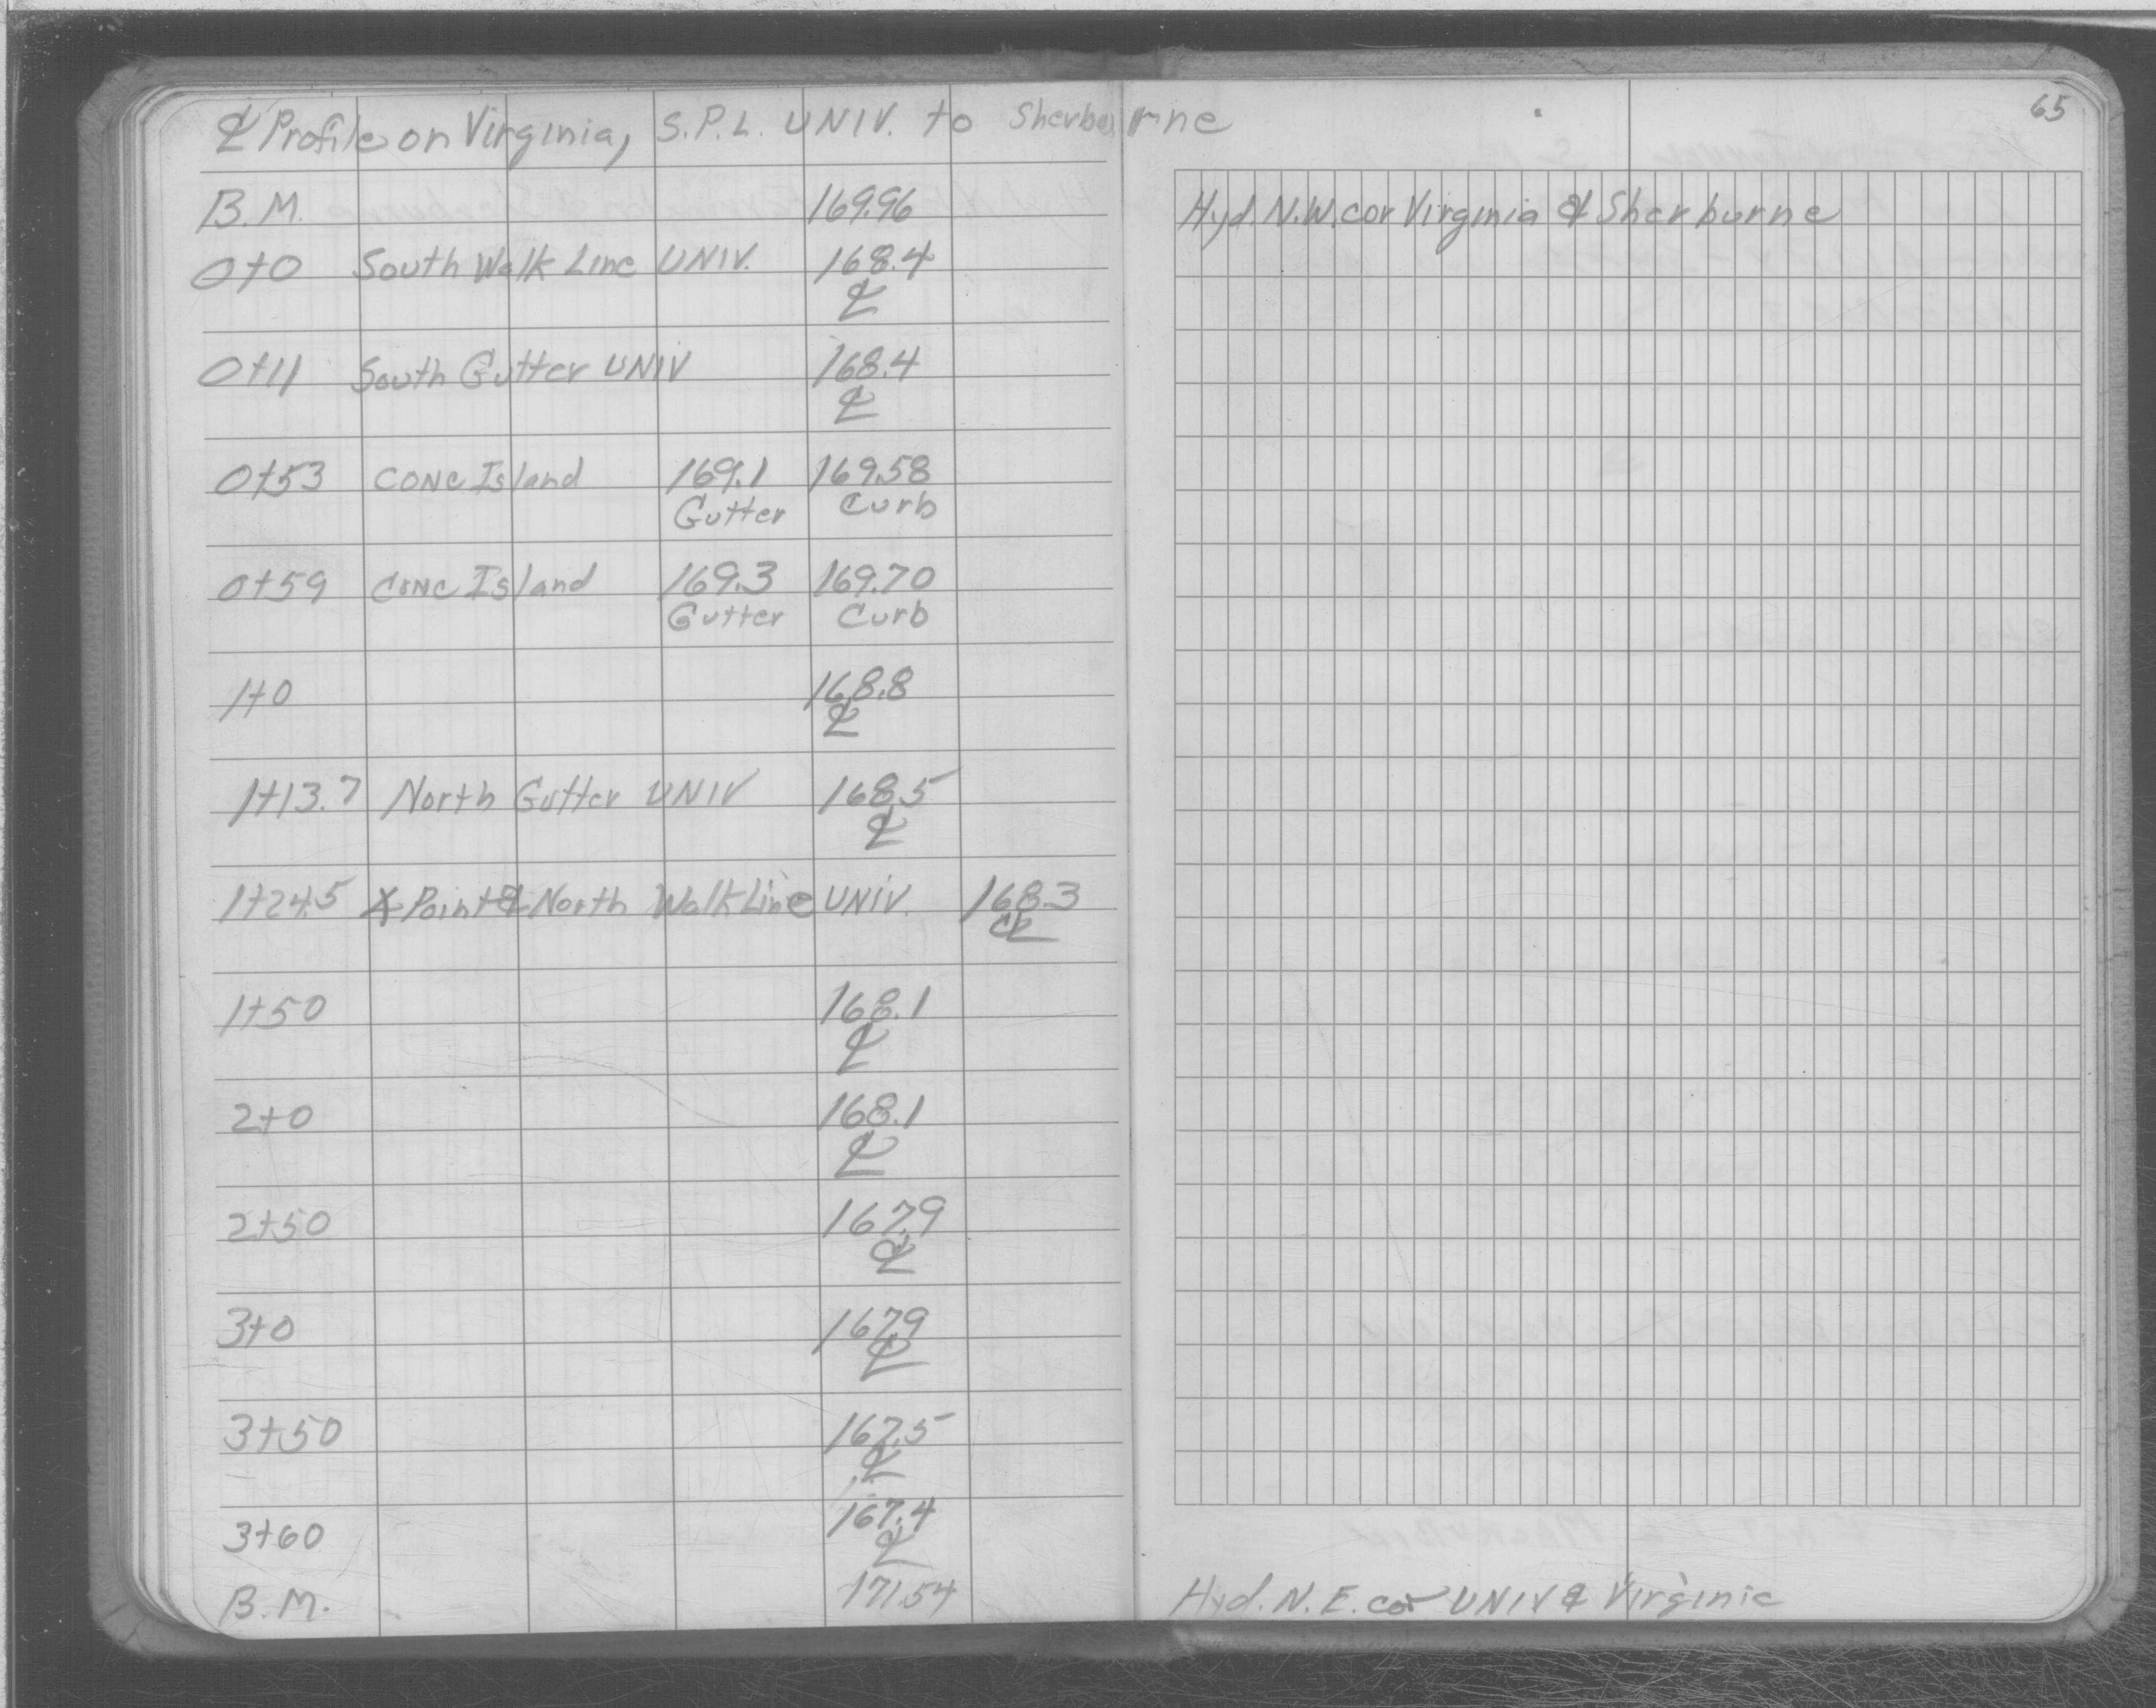 65
℄ Profile on Virginia, S.P.L. UNIV. to Sherburne
B.M. 169.96 Hyd. N.W. cor Virginia & Sherburne
0+0 South Walk Line UNIV. 168.4
℄
0+11 South Gutter UNIV 168.4
℄
0+53 CONC Island 169.1 169.58
Gutter Curb
0+59 CONC Island 169.3 169.70
Gutter Curb
1+0 168.8
℄
1+13.7 North Gutter UNIV 168.5
℄
1+24.5 Point ℄ North Walk Line UNIV. 168.3
℄
1+50 168.1
℄
2+0 168.1
℄
2+50 167.9
℄
3+0 167.9
℄
3+50 167.5
℄
3+60 167.4
℄
B.M. 171.54 Hyd. N.E. cor UNIV & Virginia